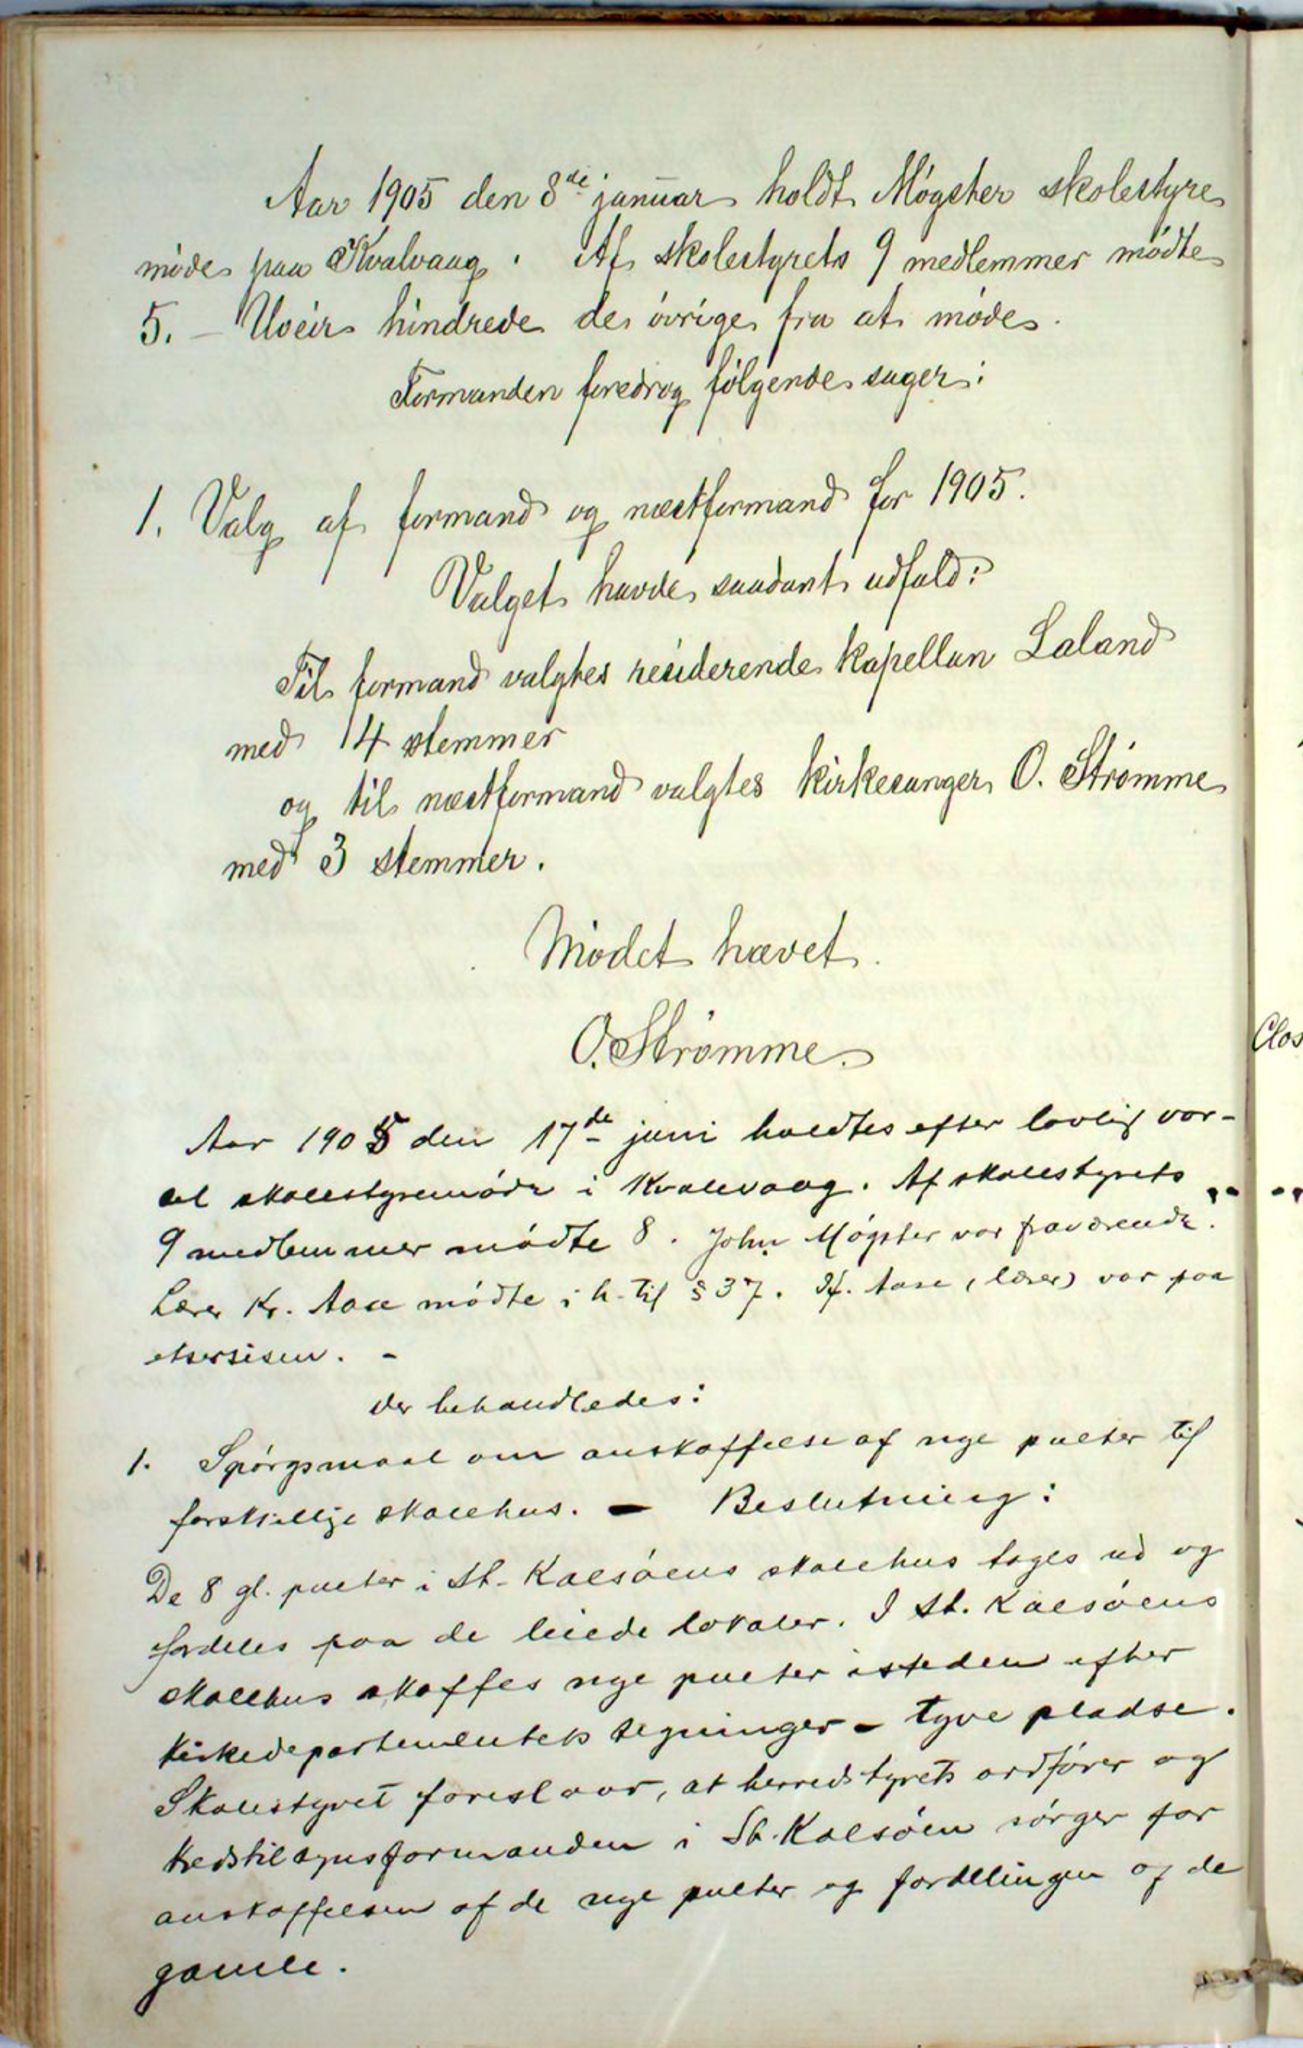 Aar 1905 den 8de januar holdt Møgster skolestyre
møde paa Kvalvaag. Af skolestyrets 9 medlemmer mødte
5. – Uveir hindrede de øvrige fra at møde.
Formanden foredrog følgende sager:
1. Valg af formand og næstformand for 1905.
Valget havde saadant udfald:
Til formand valgtes residerende kapellan Laland
med 4 stemmer
og til næstformand valgtes kirkesanger O. Strømme
med 3 stemmer.
Mødet hævet.
O. Strømme
Aar 1905 den 17de juni holdtes efter lovlig var-
sel skolestyremøde i Kvalevaag. Af skolestyrets
9 medlemmer mødte 8. John Møgster var fraværende.
Lærer Kr. Aase mødte i h. til § 37. If. Aase (lærer) var paa
eksersisen. –
Der behandledes:
1. Spørgsmaal om anskaffelse af nye pulter til
forskjellige skolehus. – Beslutning:
De 8 gl. pulter i St. Kalsøens skolehus tages ud og
fordeles paa de leiede lokaler. I St. Kalsøens
skolehus skaffes nye pulter isteden efter
kirkedepartementets tegninger – tyve pladse.
Skolestyret foreslaar, at herredstyrets ordfører og
kredstilsynsformanden i St. Kalsøen sørger for
anskaffelsen af de nye pulter og fordelingen af de
gamle.
Clos